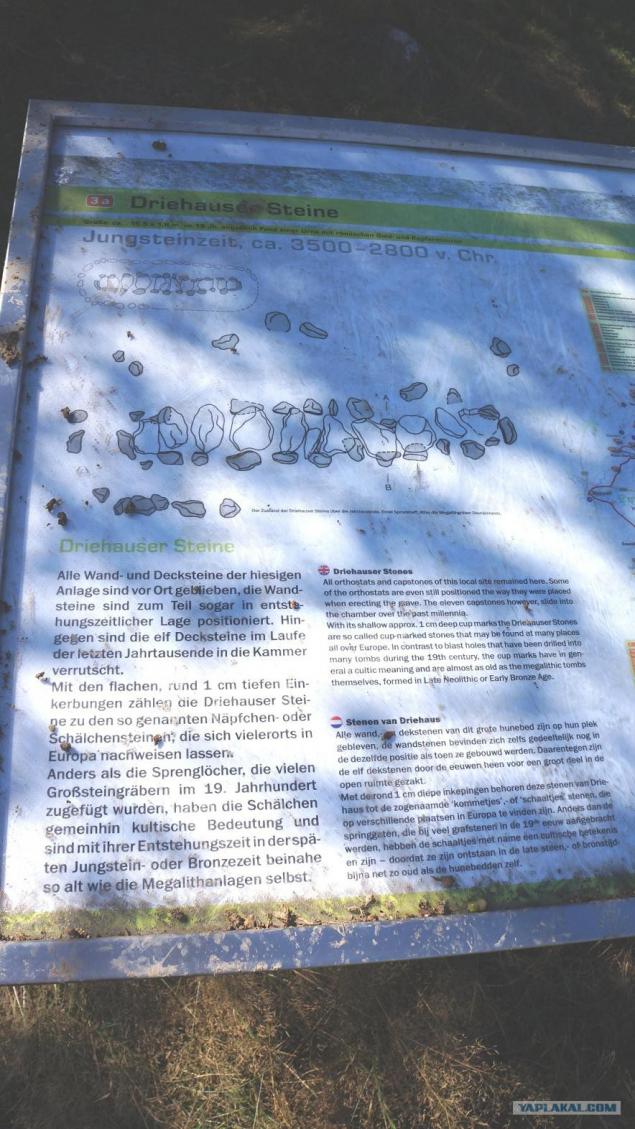 3a Driehauser Steine
Jungsteinzeit, ca. 3500–2800 v. Chr.
A
B
Driehauser Steine
Alle Wand- und Decksteine der hiesigen
Anlage sind vor Ort geblieben, die Wand-
steine sind zum Teil sogar in entste-
hungszeitlicher Lage positioniert. Hin-
gegen sind die elf Decksteine im Laufe
der letzten Jahrtausende in die Kammer
verrutscht.
Mit den flachen, rund 1 cm tiefen Ein-
kerbungen zählen die Driehauser Stei-
ne zu den so genannten Näpfchen- oder
Schälchensteinen, die sich vielerorts in
Europa nachweisen lassen.
Anders als die Sprenglöcher, die vielen
Großsteingräbern im 19. Jahrhundert
zugefügt wurden, haben die Schälchen
gemeinhin kultische Bedeutung und
sind mit ihrer Entstehungszeit in der spä-
ten Jungstein- oder Bronzezeit beinahe
so alt wie die Megalithanlagen selbst.
Driehauser Stones
All orthostats and capstones of this local site remained here. Some
of the orthostats are even still positioned the way they were placed
when erecting the grave. The eleven capstones however, slide into
the chamber over the past millennia.
With its shallow approx. 1 cm deep cup marks the Driehauser Stones
are so called cup-marked stones that may be found at many places
all over Europe. In contrast to blast holes that have been drilled into
many tombs during the 19th century, the cup marks have in gen-
eral a cultic meaning and are almost as old as the megalithic tombs
themselves, formed in Late Neolithic or Early Bronze Age.
Stenen van Driehaus
Alle wand- en dekstenen van dit grote hunebed zijn op hun plek
gebleven, de wandstenen bevinden zich zelfs gedeeltelijk nog in
de dezelfde positie als toen ze gebouwd werden. Daarentegen zijn
de elf dekstenen door de eeuwen heen voor een groot deel in de
open ruimte gezakt.
Met de rond 1 cm diepe inkepingen behoren deze stenen van Drie-
haus tot de zogenaamde 'kommetjes'- of 'schaaltjes' stenen, die
op verschillende plaatsen in Europa te vinden zijn. Anders dan de
springgaten, die bij veel grafstenen in de 19de eeuw aangebracht
werden, hebben de schaaltjes met name een cultische betekenis
en zijn – doordat ze zijn ontstaan in de late steen- of bronstijd
bijna net zo oud als de hunebedden zelf.
YAPLAKAL.COM